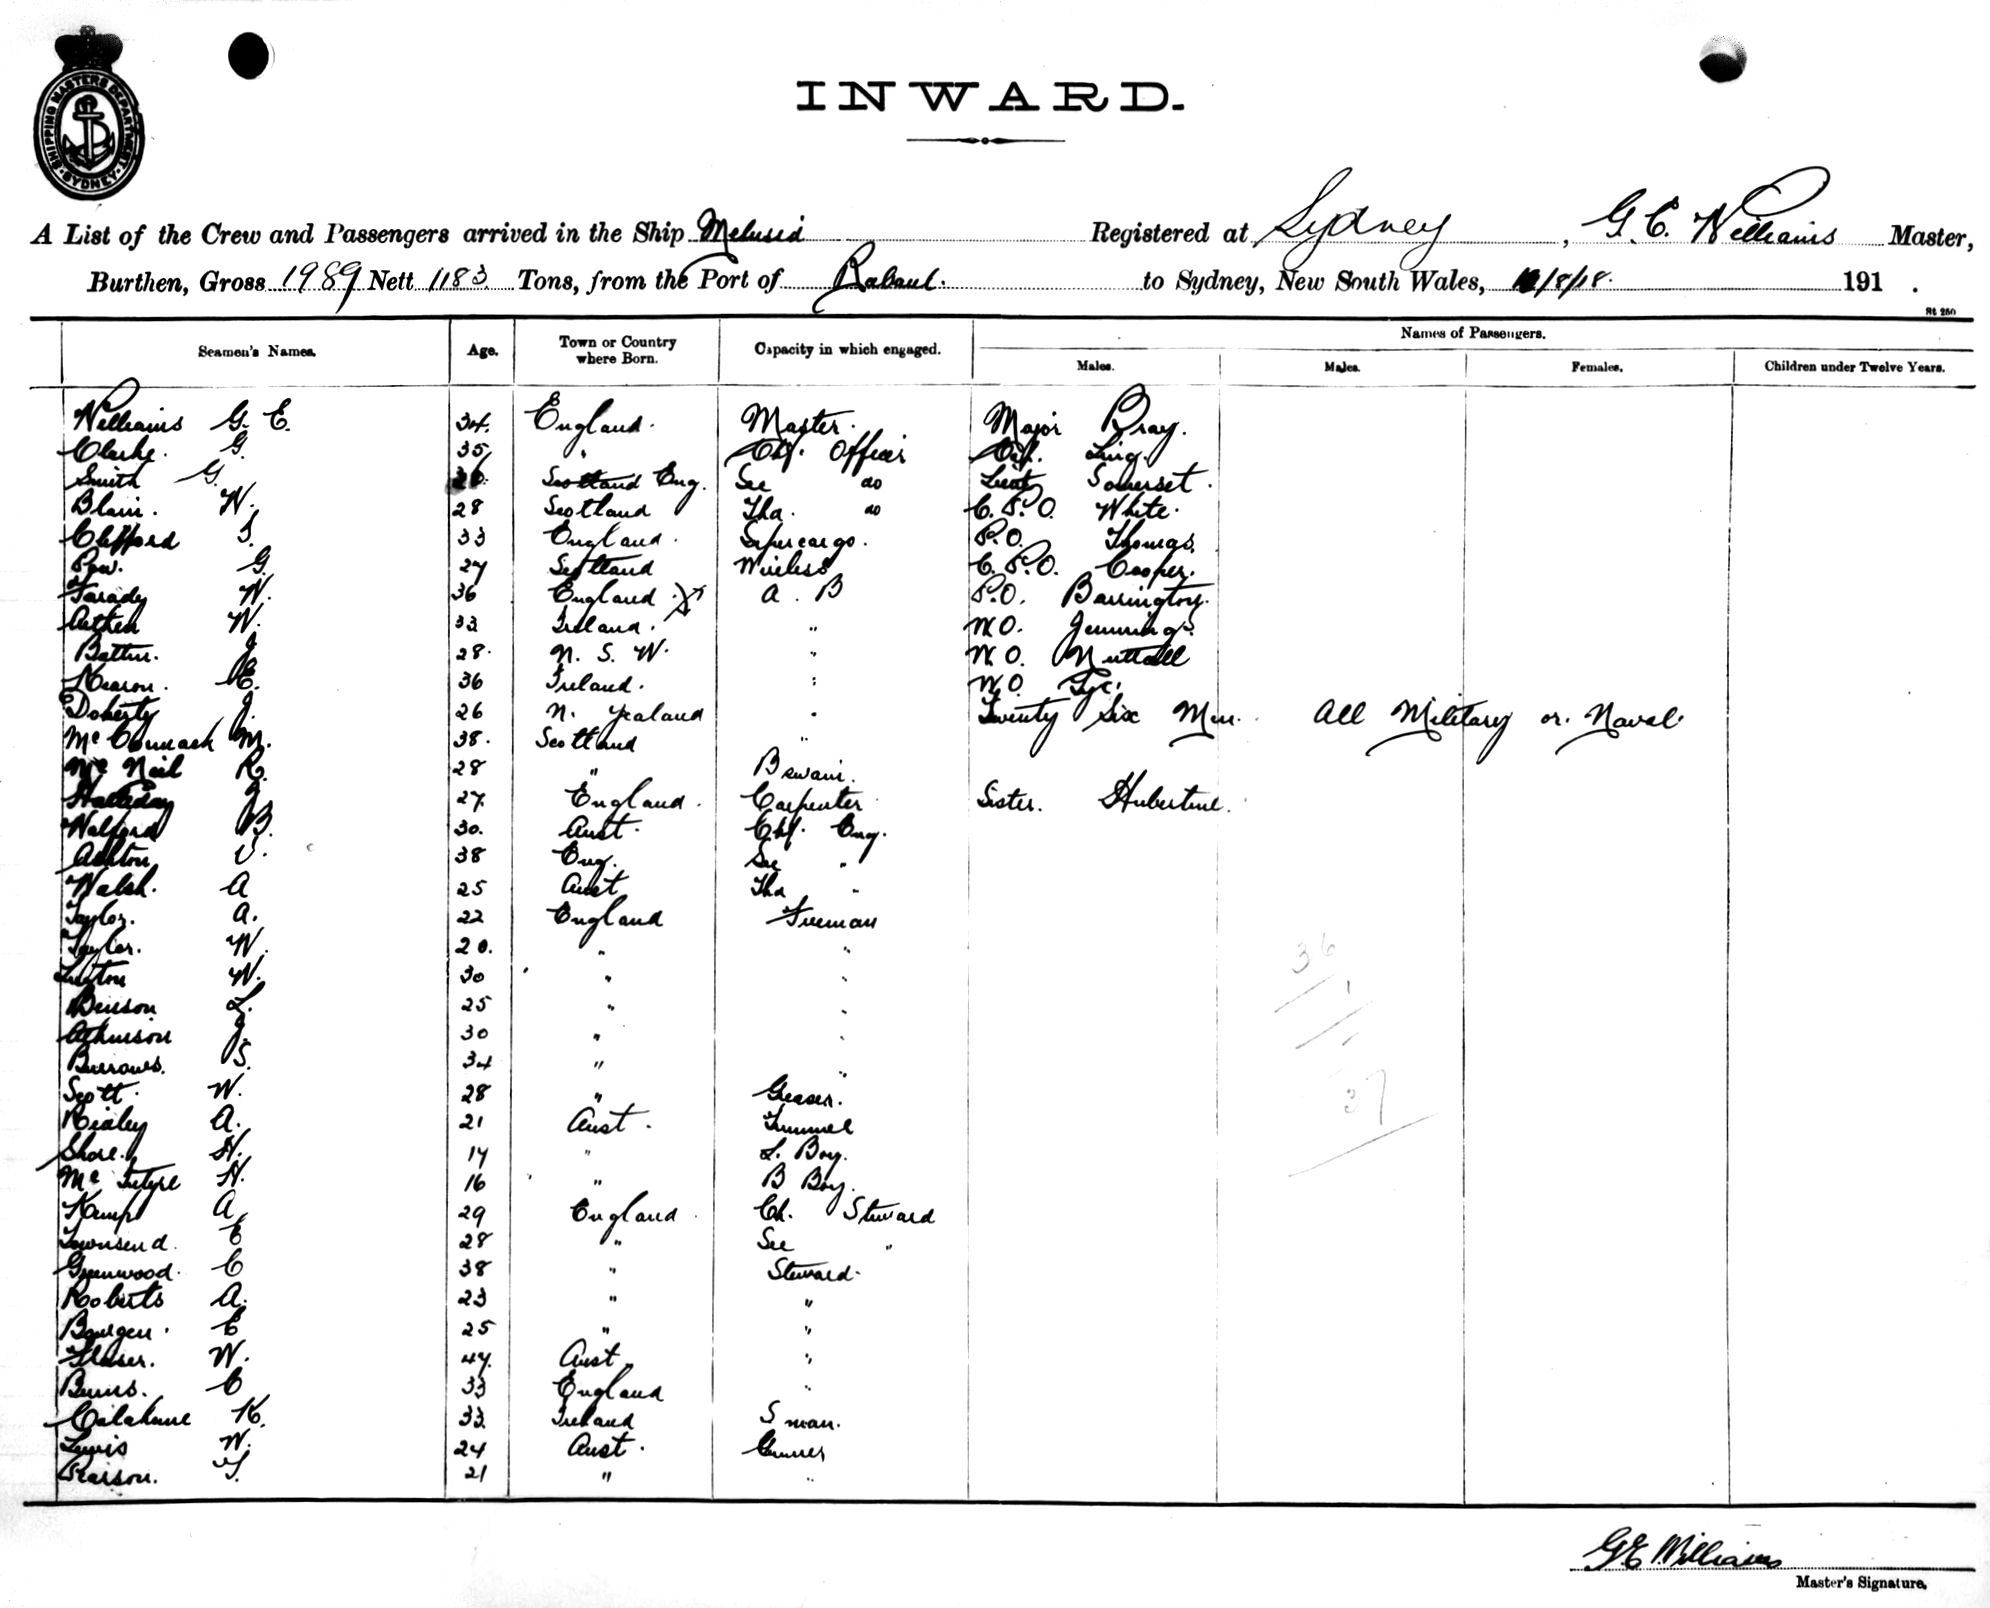 SHIPPING MASTERS DEPARTMENT
SYDNEY
INWARD.
A List of the Crew and Passengers arrived in the Ship Melusia Registered at Sydney, G. C. Williams Master,
Burthen, Gross 1989 Nett 1183 Tons, from the Port of Rabaul. to Sydney, New South Wales, /8/18. 191 .
St 250
Seamen's Names. Age. Town or Country where Born. Capacity in which engaged. Names of Passengers.
Males. Males. Females. Children under Twelve Years.
Williams G. E. 34. England. Master. Major Bray.
Clarke. G. 35 " Chf. Officer Ling.
Smith G. 36. Scotland Eng. Sec do Lieut Somerset.
Blair. W. 28 Scotland Thd. do C.P.O. White.
Clifford S. 33 England. Supercargo. P.O. Thomas.
G. 27 Scotland Wireless C.P.O. Cooper.
W. 36 England. A. B P.O. Barrington.
Aitken W. 33 Ireland. " W.O. Jennings.
J 28. N. S. W. " W.O. Nuttall
Kearon. E. 36 Ireland. " W.O. Tye.
Doherty J. 26 N. Zealand " Twenty Six Men. All Military or Naval.
Mc Cormack M. 38. Scotland "
Mc Neil R. 28 " Bswain.
Halliday J 27. England. Carpenter Sister. Hubertine.
Walford B. 30. Aust. Chf. Eng.
Ashton V. 38 Eng. Sec "
Walsh. A 25 Aust Thd "
Taylor. A. 22 England Fireman
Taylor. W. 20. " "
W. 30 " "
Benson L. 25 " "
Atkinson J. 30 " "
Burrows. S. 34 " "
Scott. W. 28 " Greaser.
Ridley A. 21 Aust. Trimmer
Shore. H. 17 " S. Boy.
Mc Intyre H. 16 " B Boy.
Kemp A 29 England Ch. Steward
Townsend. E 28 " Sec "
Greenwood. C 38 " Steward.
Roberts A. 23 " "
C 25 " "
Fraser. W. 47. Aust "
Burns. C 33 England "
K. 33 Ireland S man.
Lewis W. 24 Aust. Gunner
Pearson. T. 21 " "
36
1
37
G E Williams
Master's Signature.